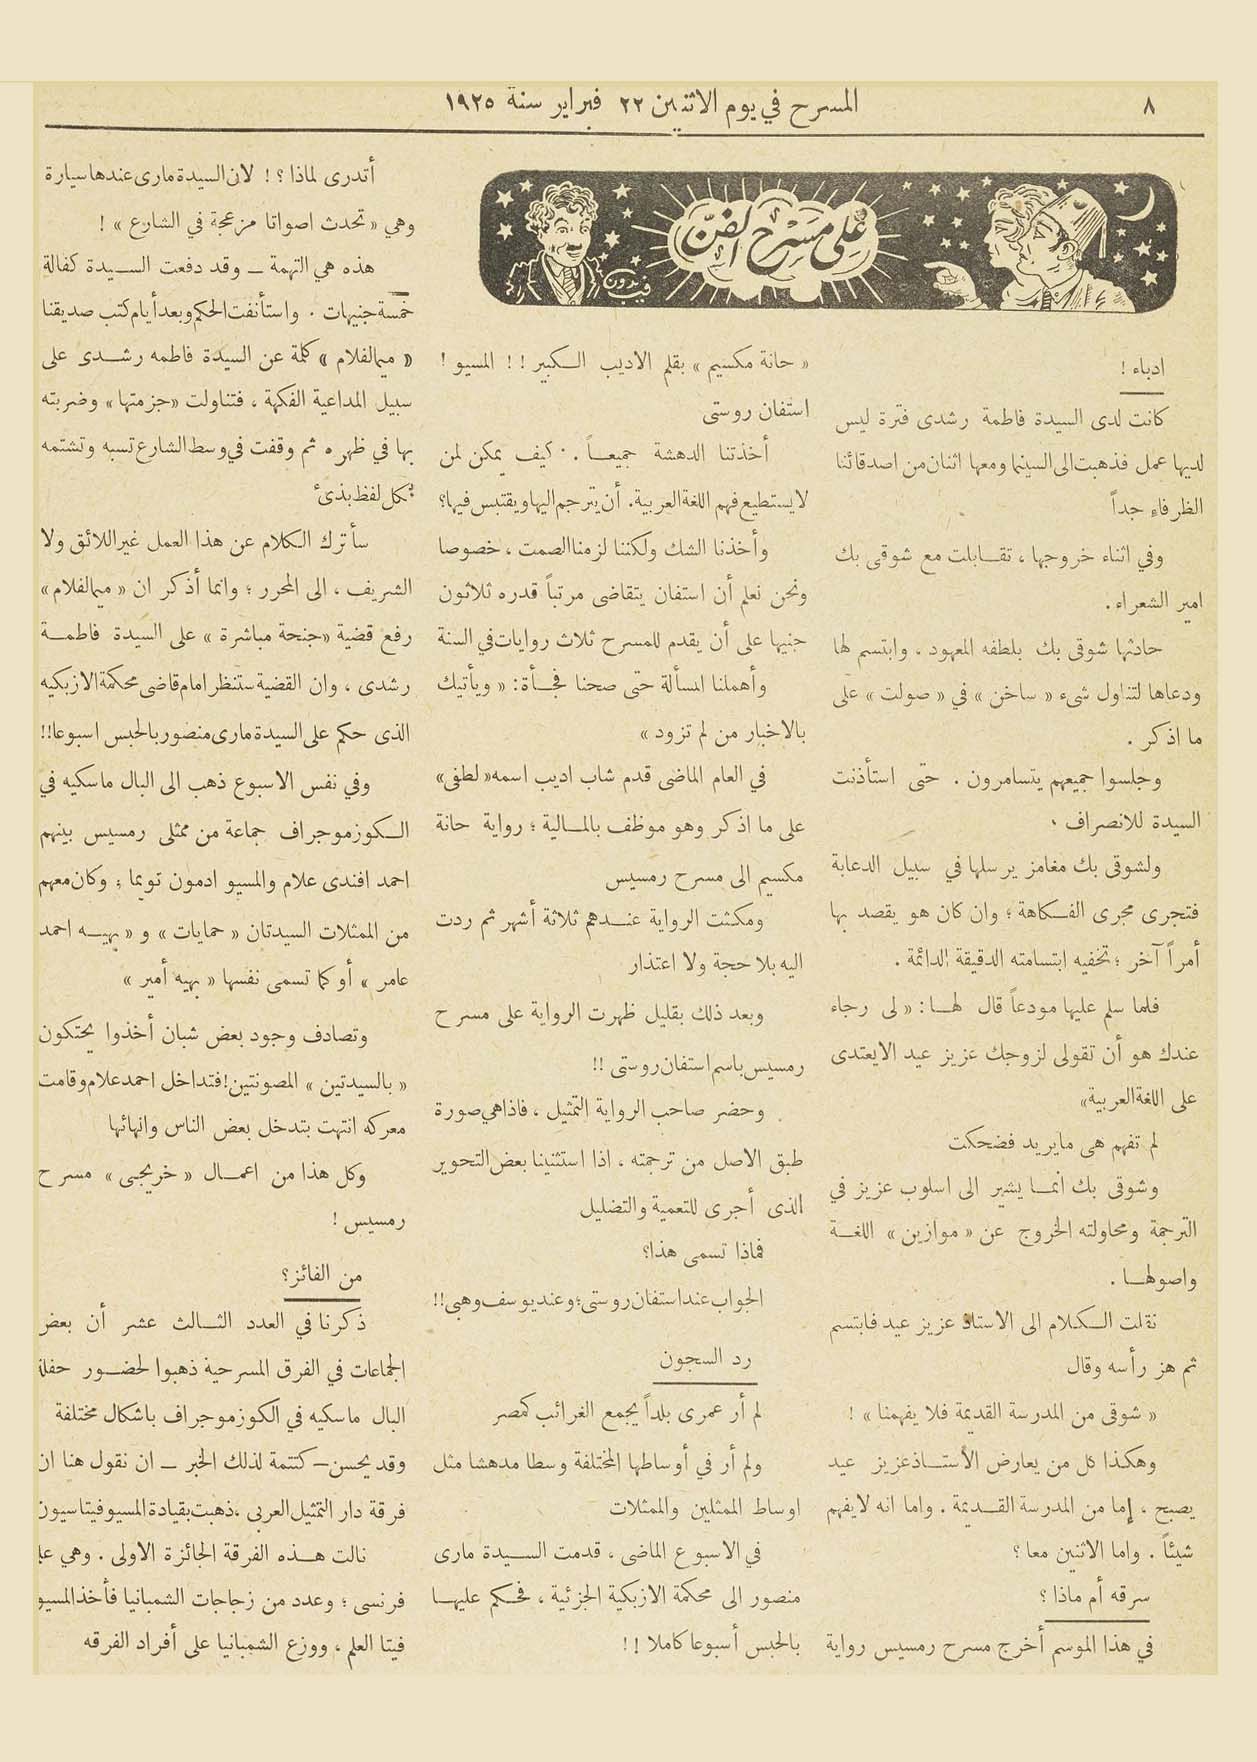 ٨
المسرح في يوم الاثنين ٢٢ فبراير سنة ١٩٢٥
على مسرح الفن
فيدون
ادباء !
كانت لدى السيدة فاطمة رشدى فترة ليس
لديها عمل فذهبت الى السينما ومعها اثنان من اصدقائنا
الظرفاء جداً
وفي اثناء خروجها ، تقابلت مع شوقى بك
امير الشعراء .
حادثها شوقى بك بلطفه المعهود ، وابتسم لها
ودعاها لتناول شىء « ساخن » في « صولت » على
ما اذكر .
وجلسوا جميعهم يتسامرون . حتى استأذنت
السيدة للانصراف .
ولشوقى بك مغامز يرسلها في سبيل الدعابة
فتجرى مجرى الفكاهة ؛ وان كان هو يقصد بها
أمراً آخر ؛ تخفيه ابتسامته الدقيقة الدائمة .
فلما سلم عليها مودعاً قال لها : « لى رجاء
عندك هو أن تقولى لزوجك عزيز عيد الايعتدى
على اللغة العربية »
لم تفهم هى مايريد فضحكت
وشوقى بك انما يشير الى اسلوب عزيز في
الترجمة ومحاولته الخروج عن « موازين » اللغة
واصولها .
نقلت الكلام الى الاستاذ عزيز عيد فابتسم
ثم هز رأسه وقال
« شوقى من المدرسة القديمة فلا يفهمنا » !
وهكذا كل من يعارض الأستاذ عزيز عيد
يصبح ، إما من المدرسة القديمة . واما انه لا يفهم
شيئاً . واما الاثنين معا ؟
سرقه أم ماذا ؟
في هذا الموسم أخرج مسرح رمسيس رواية
« حانة مكسيم » بقلم الاديب الكبير ! ! المسيو !
استفان روستى
أخذتنا الدهشة جميعاً . . كيف يمكن لمن
لا يستطيع فهم اللغة العربية . أن يترجم اليها ويقتبس فيها ؟
وأخذنا الشك ولكننا لزمنا الصمت ، خصوصا
ونحن نعلم أن استفان يتقاضى مرتباً قدره ثلاثون
جنيها على أن يقدم للمسرح ثلاث روايات في السنة
وأهملنا المسألة حتى صحنا فجأة : « ويأتيك
بالاخبار من لم تزود »
في العام الماضى قدم شاب اديب اسمه « لطفى »
على ما اذكر وهو موظف بالمالية ؛ رواية حانة
مكسيم الى مسرح رمسيس
ومكثت الرواية عندهم ثلاثة أشهر ثم ردت
اليه بلا حجة ولا اعتذار
وبعد ذلك بقليل ظهرت الرواية على مسرح
رمسيس باسم استفان روستى !!
وحضر صاحب الرواية التمثيل ، فاذا هي صورة
طبق الاصل من ترجمته ، اذا استثنينا بعض التحوير
الذى أجرى للتعمية والتضليل
فماذا تسمى هذا ؟
الجواب عند استفان روستى ؛ وعند يوسف وهبى !!
رد السجون
لم أر عمرى بلداً يجمع الغرائب كمصر
ولم أر في أوساطها المختلفة وسطا مدهشا مثل
اوساط الممثلين والممثلات
في الاسبوع الماضى ، قدمت السيدة مارى
منصور الى محكمة الازبكية الجزئية ، فحكم عليها
بالحبس أسبوعا كاملا ! !
أتدرى لماذا ؟ ! لان السيدة مارى عندها سيارة
وهي « تحدث اصواتا مزعجة في الشارع » !
هذه هي التهمة — وقد دفعت السيدة كفالة
خمسة جنيهات . واستأنفت الحكم وبعد أيام كتب صديقنا
« ميم الفلام » كلمة عن السيدة فاطمه رشدى على
سبيل المداعبة الفكهة ، فتناولت « جزمتها » وضربته
بها في ظهره ثم وقفت في وسط الشارع تسبه وتشتمه
بكل لفظ بذىء
سأترك الكلام عن هذا العمل غير اللائق ولا
الشريف ، الى المحرر ؛ وانما أذكر ان « ميم الفلام »
رفع قضية « جنحة مباشرة » على السيدة فاطمة
رشدى ، وان القضية ستنظر امام قاضى محكمة الازبكيه
الذى حكم على السيدة مارى منصور بالحبس اسبوعا !!
وفي نفس الاسبوع ذهب الى البال ماسكيه في
الكوزموجراف جماعة من ممثلى رمسيس بينهم
احمد افندى علام والمسيو ادمون تويما ؛ وكان معهم
من الممثلات السيدتان « حمايات » و « بهيه احمد
عامر » أو كما تسمى نفسها « بهيه أمير »
وتصادف وجود بعض شبان أخذوا يحتكون
« بالسيدتين » المصونتين ! فتداخل احمد علام وقامت
معركه انتهت بتدخل بعض الناس وانهائها
وكل هذا من اعمال « خريجى » مسرح
رمسيس !
من الفائز ؟
ذكرنا في العدد الثالث عشر أن بعض
الجماعات في الفرق المسرحية ذهبوا لحضور حفلة
البال ماسكيه في الكوزموجراف باشكال مختلفة
وقد يحسن — كتتمة لذلك الخبر — ان نقول هنا ان
فرقة دار التمثيل العربي ، ذهبت بقيادة المسيو فيتاسيون
نالت هذه الفرقة الجائزة الاولى . وهي علم
فرنسى ؛ وعدد من زجاجات الشمبانيا فأخذ المسيو
فيتا العلم ، ووزع الشمبانيا على أفراد الفرقه